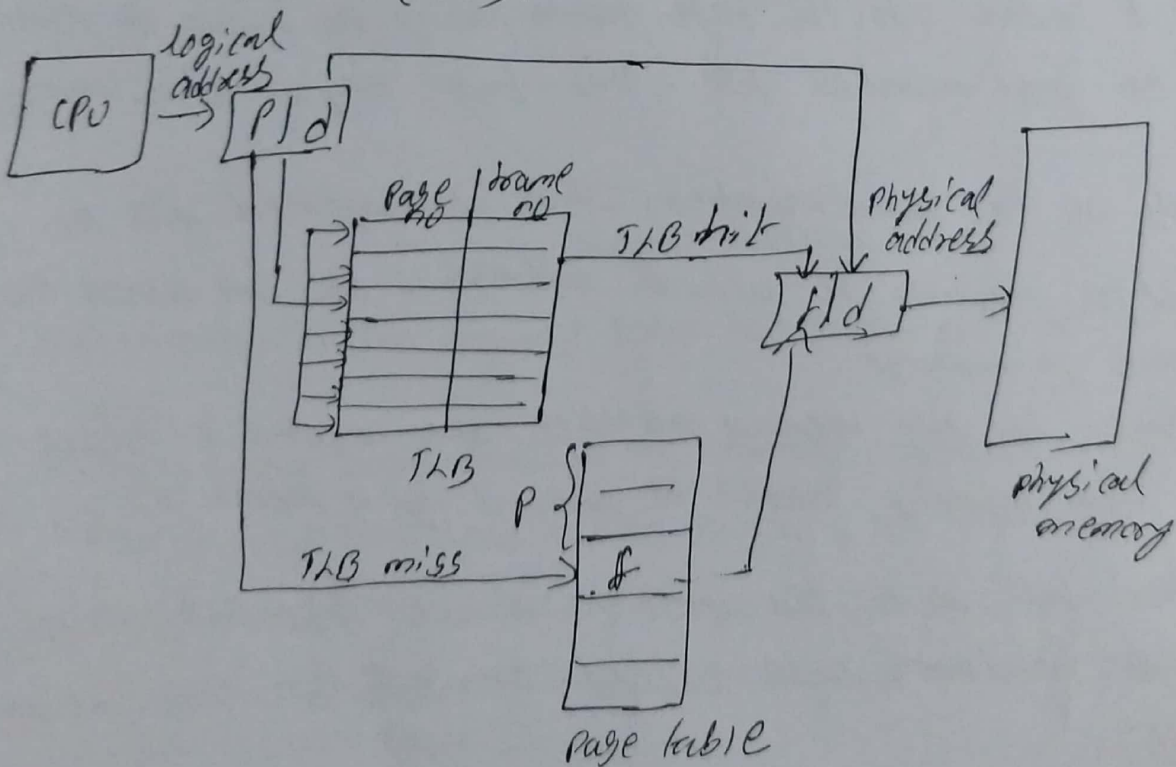 logical
address
CPU
P d
Page
no
frame
no
TLB hit
physical
address
f d
TLB
P
TLB miss
f
physical
memory
page table